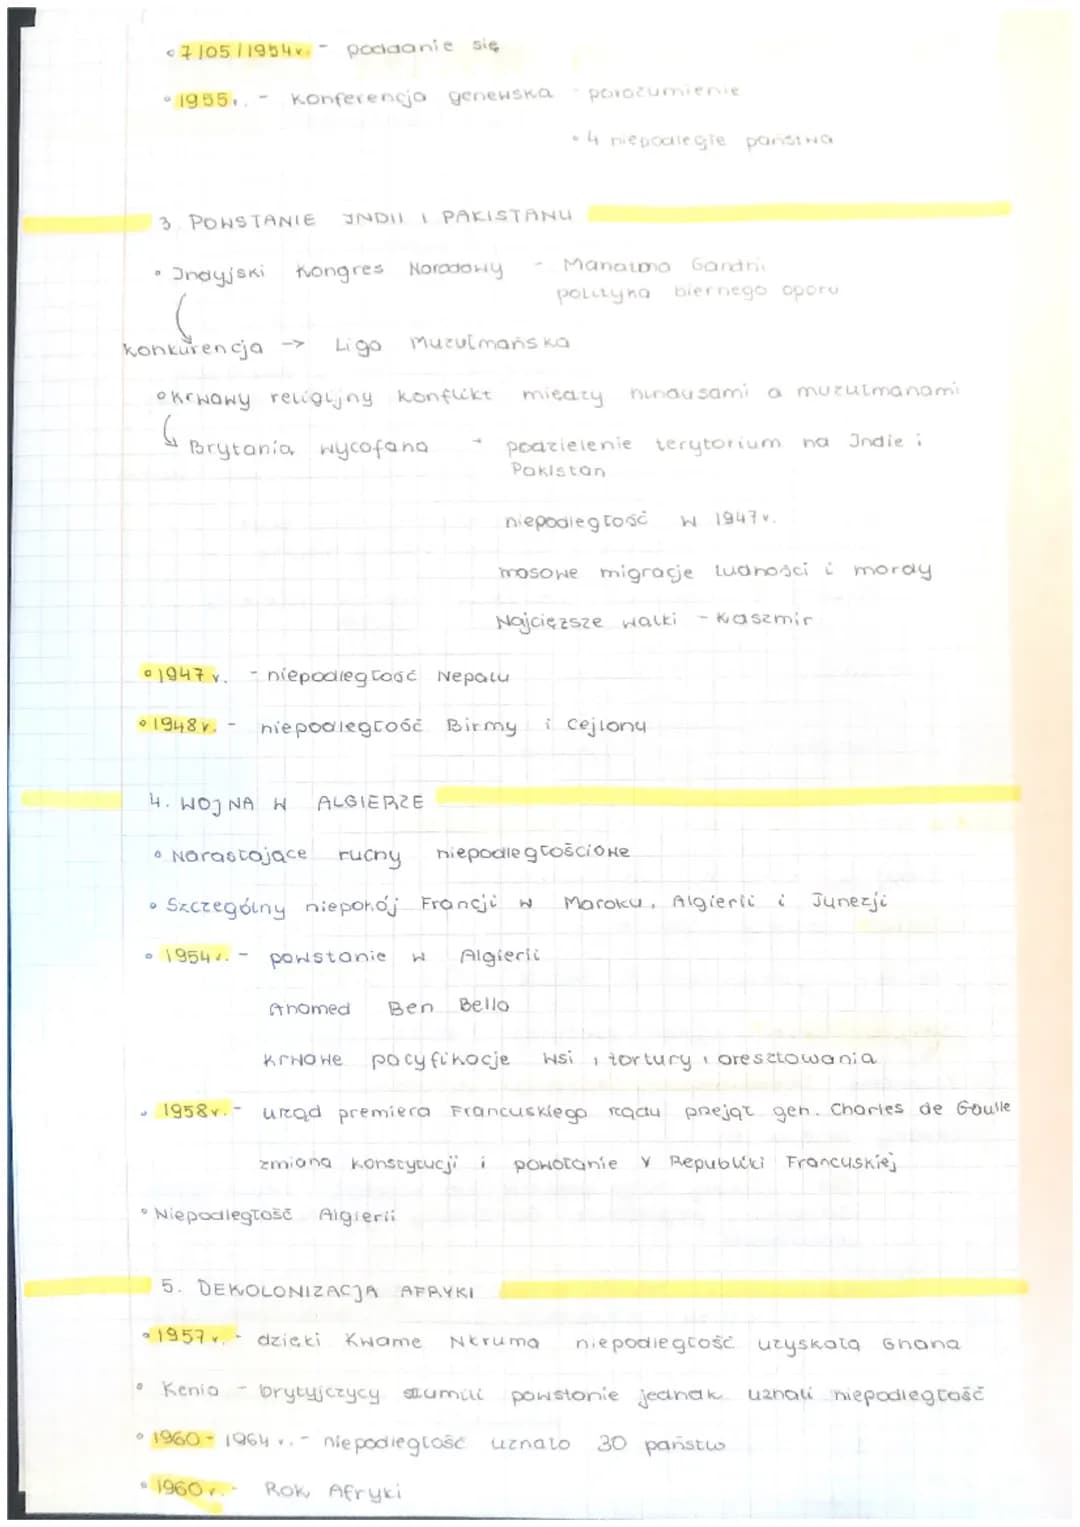 7/05/1954r. - poddanie się
1955r. - Konferencja genewska - porozumienie
4 niepodległe państwa
3. POWSTANIE INDII I PAKISTANU
Indyjski Kongres Narodowy - Mahatma Gandhi
polityka biernego oporu
konkurencja -> Liga Muzułmańska
Krwawy religijny konflikt między hindusami a muzułmanami
Brytania wycofana - podzielenie terytorium na Indie i
Pakistan
niepodległość w 1947r.
masowe migracje ludności i mordy
Najcięższe walki - Kaszmir
1947r. - niepodległość Nepalu
1948r. - niepodległość Birmy i Cejlonu
4. WOJNA W ALGIERZE
Narastające ruchy niepodległościowe
Szczególny niepokój Francji w Maroku, Algierii i Tunezji
1954r. - powstanie w Algierii
Ahomed Ben Bella
Krwawe pacyfikacje wsi, tortury, aresztowania
1958r. - urząd premiera Francuskiego rządu przejął gen. Charles de Gaulle
zmiana konstytucji i powołanie V Republiki Francuskiej
Niepodległość Algierii
5. DEKOLONIZACJA AFRYKI
1957r. - dzięki Kwame Nkruma niepodległość uzyskała Ghana
Kenia - brytyjczycy stłumili powstanie jednak uznali niepodległość
1960 - 1964r. - niepodległość uznało 30 państw
1960r. - Rok Afryki